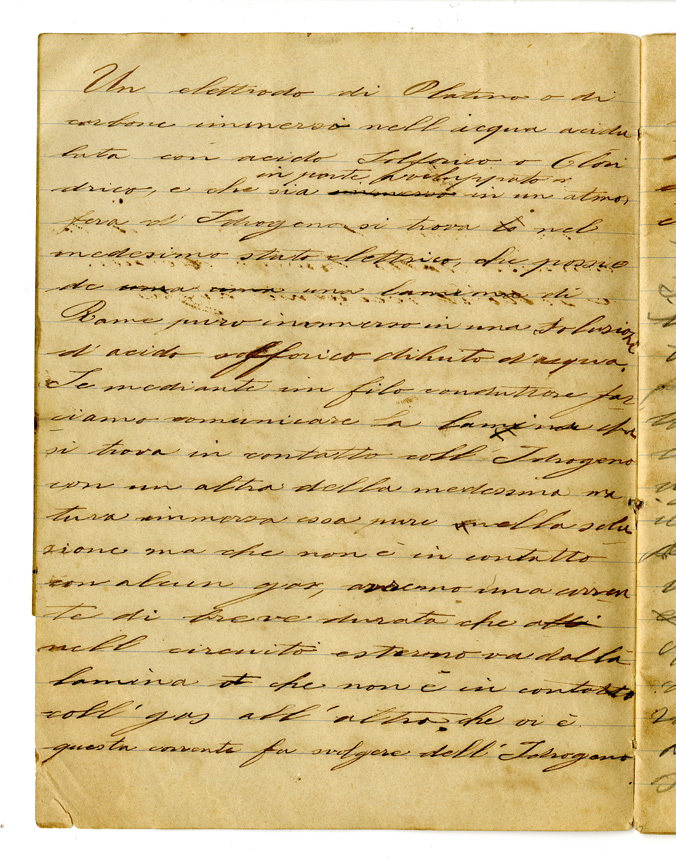 Un elettrodo di Platino o di
carbone immerso nell'acqua acidu
lata con acido Solforico o Clori
in parte sviluppato
drico, e che sia immerso in un atmo,
fera d'Idrogeno si trova nel
medesimo stato elettrico, che possie
de una una lamina di
Rame puro immerso in una soluzione
d'acido solforico diluto d'acqua.
Se mediante un filo conduttore fac
ciamo comunicare la lamina che
si trova in contatto coll'Idrogeno
con un altra della medesima na
tura immersa essa pure nella solu
zione ma che non è in contatto
con alcun gas, avremo una corren
te di breve durata che
nell circuito esterno va dalla
lamina che non è in contatto
coll'gas all'altra che vi è
questa corrente fa svolgere dell'Idrogeno